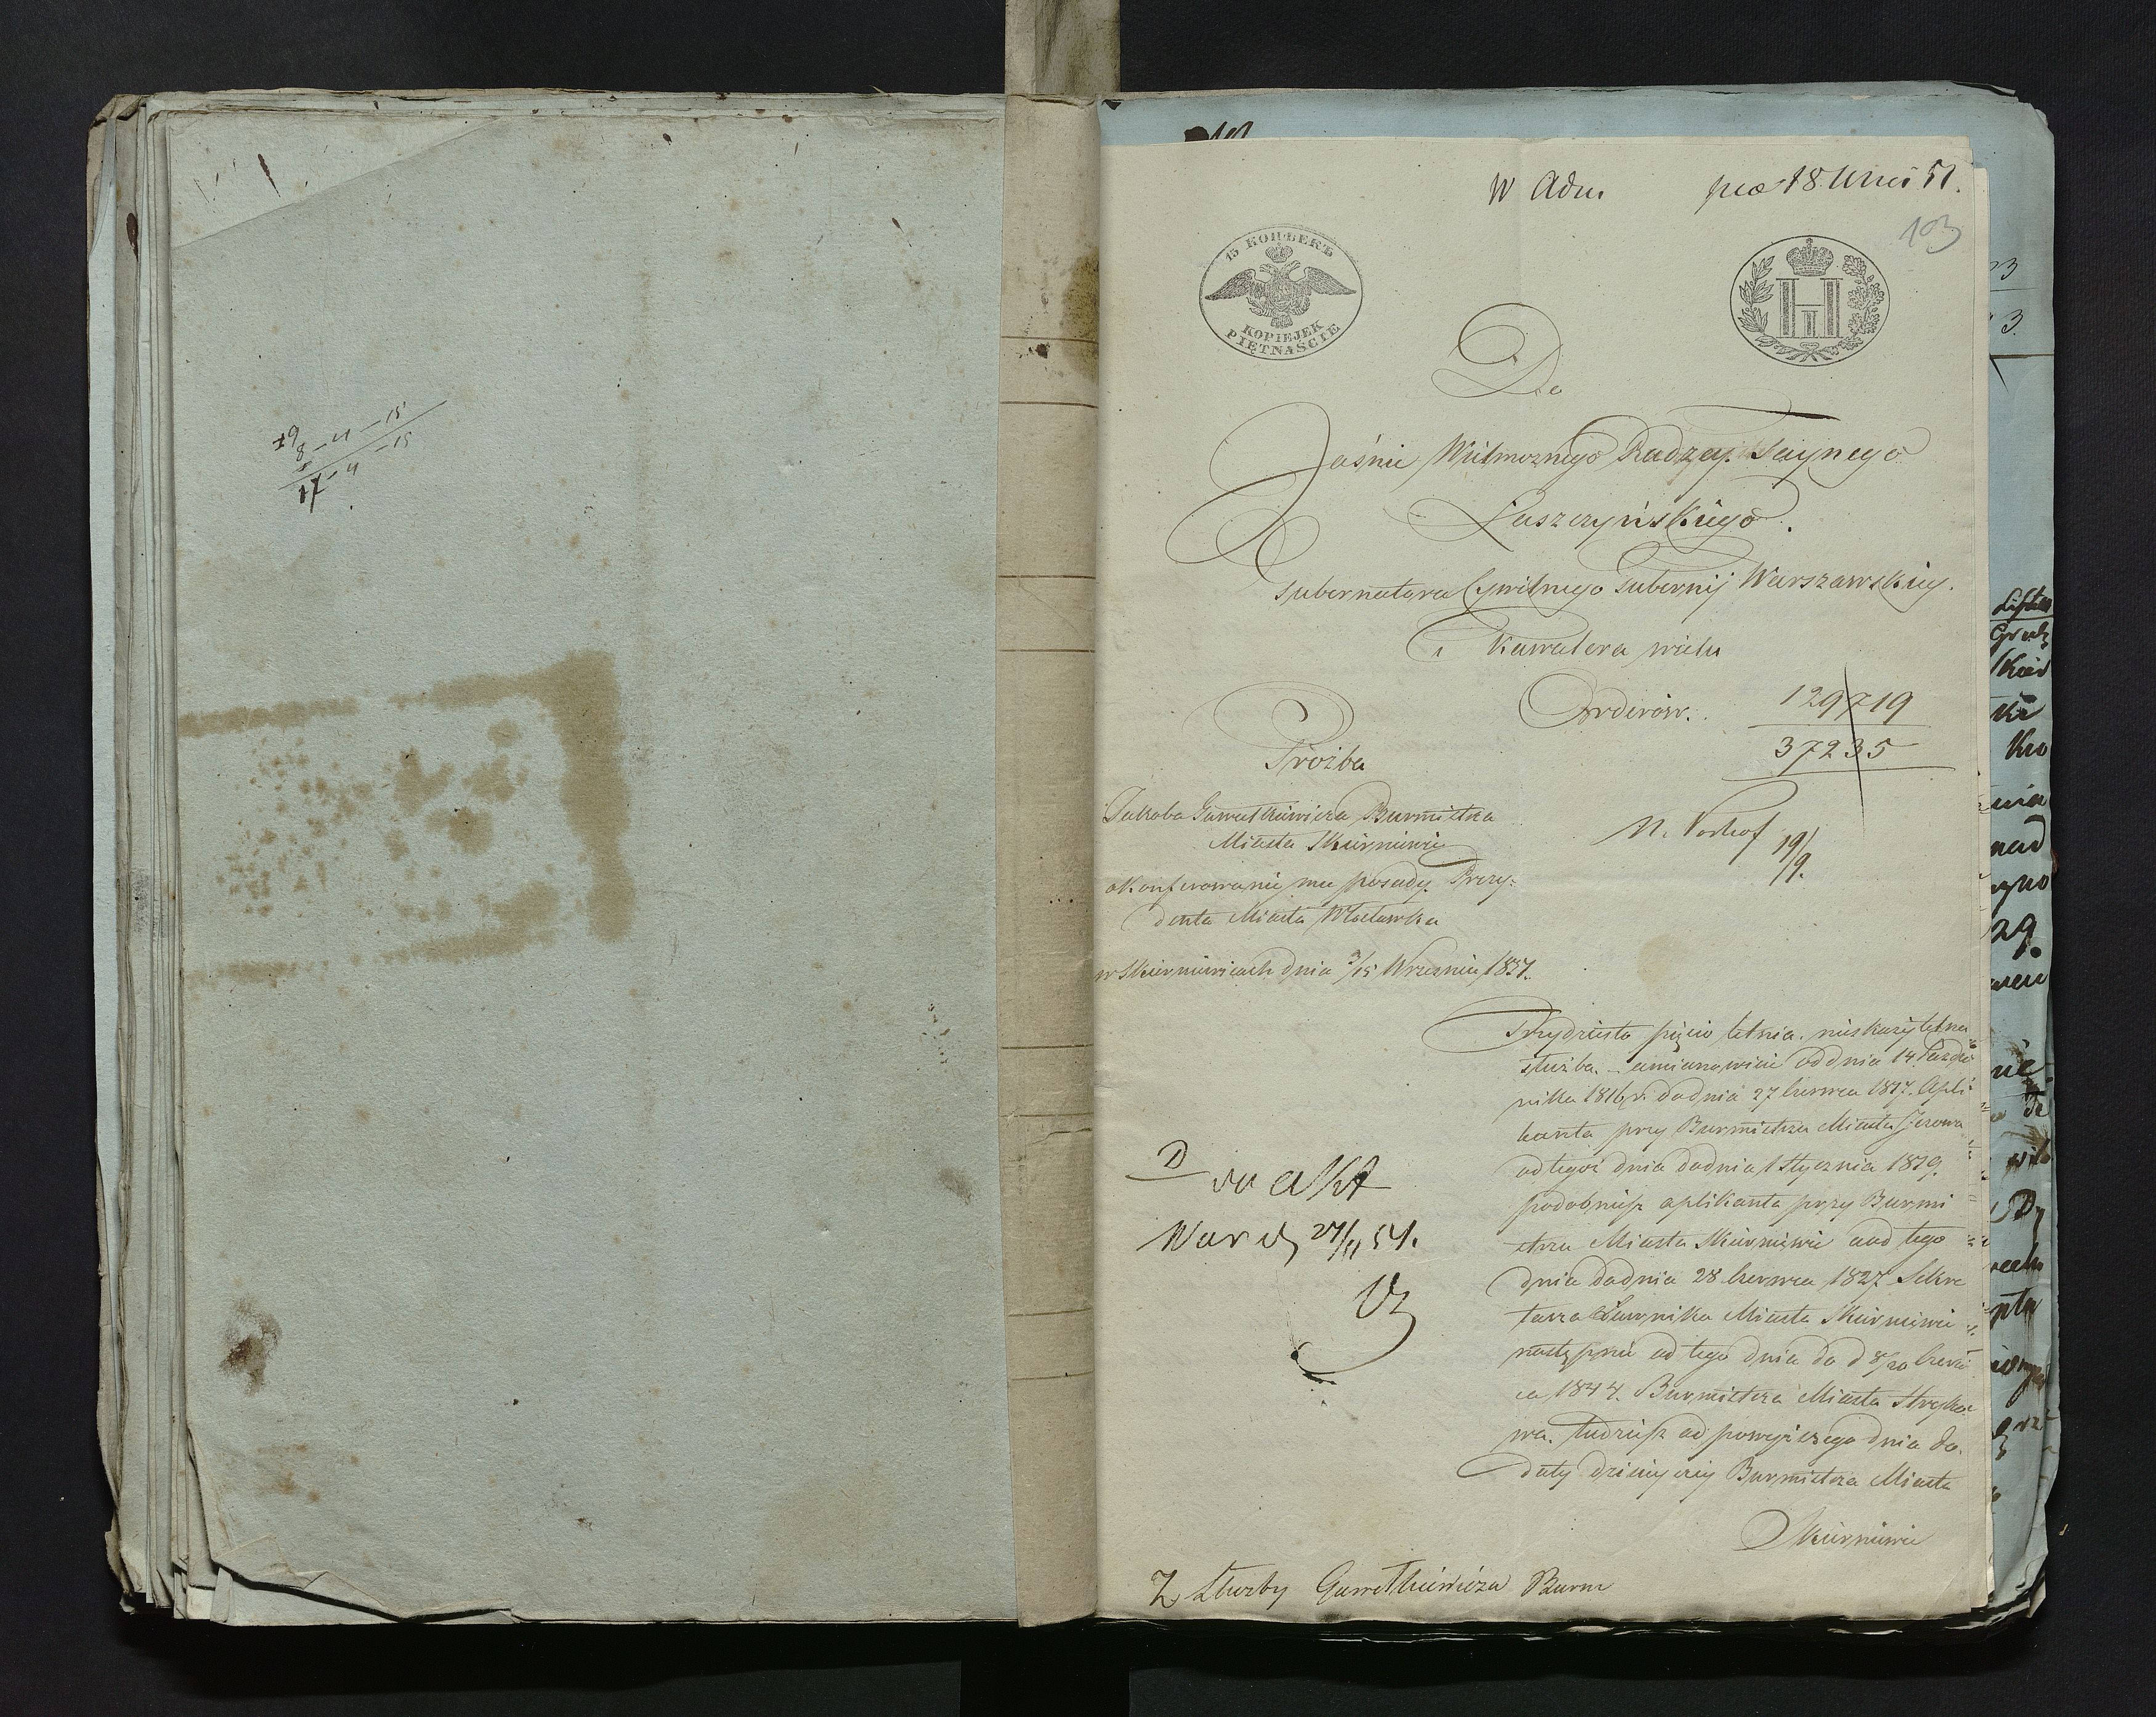 19
8 – 4 – 15
17 – 4 – 15
W Adm
18 51.
103
15 КОПѢЕКЪ
KOPIEJEK
PIĘTNAŚCIE
Do
Jaśnie Wielmożnego Radzcy Taynego
Łaszczyńskiego.
Gubernatora Cywilnego Gubernij Warszawskiey.
i Kawalera wielu
Orderów.
129719
37235
Proźba
Jakoba Gawełkiewicza Burmistrza
Miasta Skierniewic
o konferowanie mu posady Prezy-
denta Miasta Włocławka
w Skierniewicach dnia 3/15 Września 1851.
19/9.
Trzydziesto pięcio letnia nieskazitelna
służba – a mianowicie od dnia 14 Paździer
nika 1816 r. do dnia 27 Czerwca 1817. Apli
kanta przy Burmistrzu Miasta Jeżowa
od tegoż dnia do dnia 1 Stycznia 1819.
podobnież aplikanta przy Burmi
strzu Miasta Skierniewic a od tego
dnia do dnia 28 Czerwca 1827 Sekre
tarza Ławnika Miasta Skierniewic
następnie od tego dnia do d 8/20 Czerw
ca 1844. Burmistrza Miasta Stryko
wa. tudzież od powyższego dnia do
daty dzisiejszej Burmistrza Miasta
Skierniewic
D
do akt
51.
Z Służby Gawełkiewicza Burm